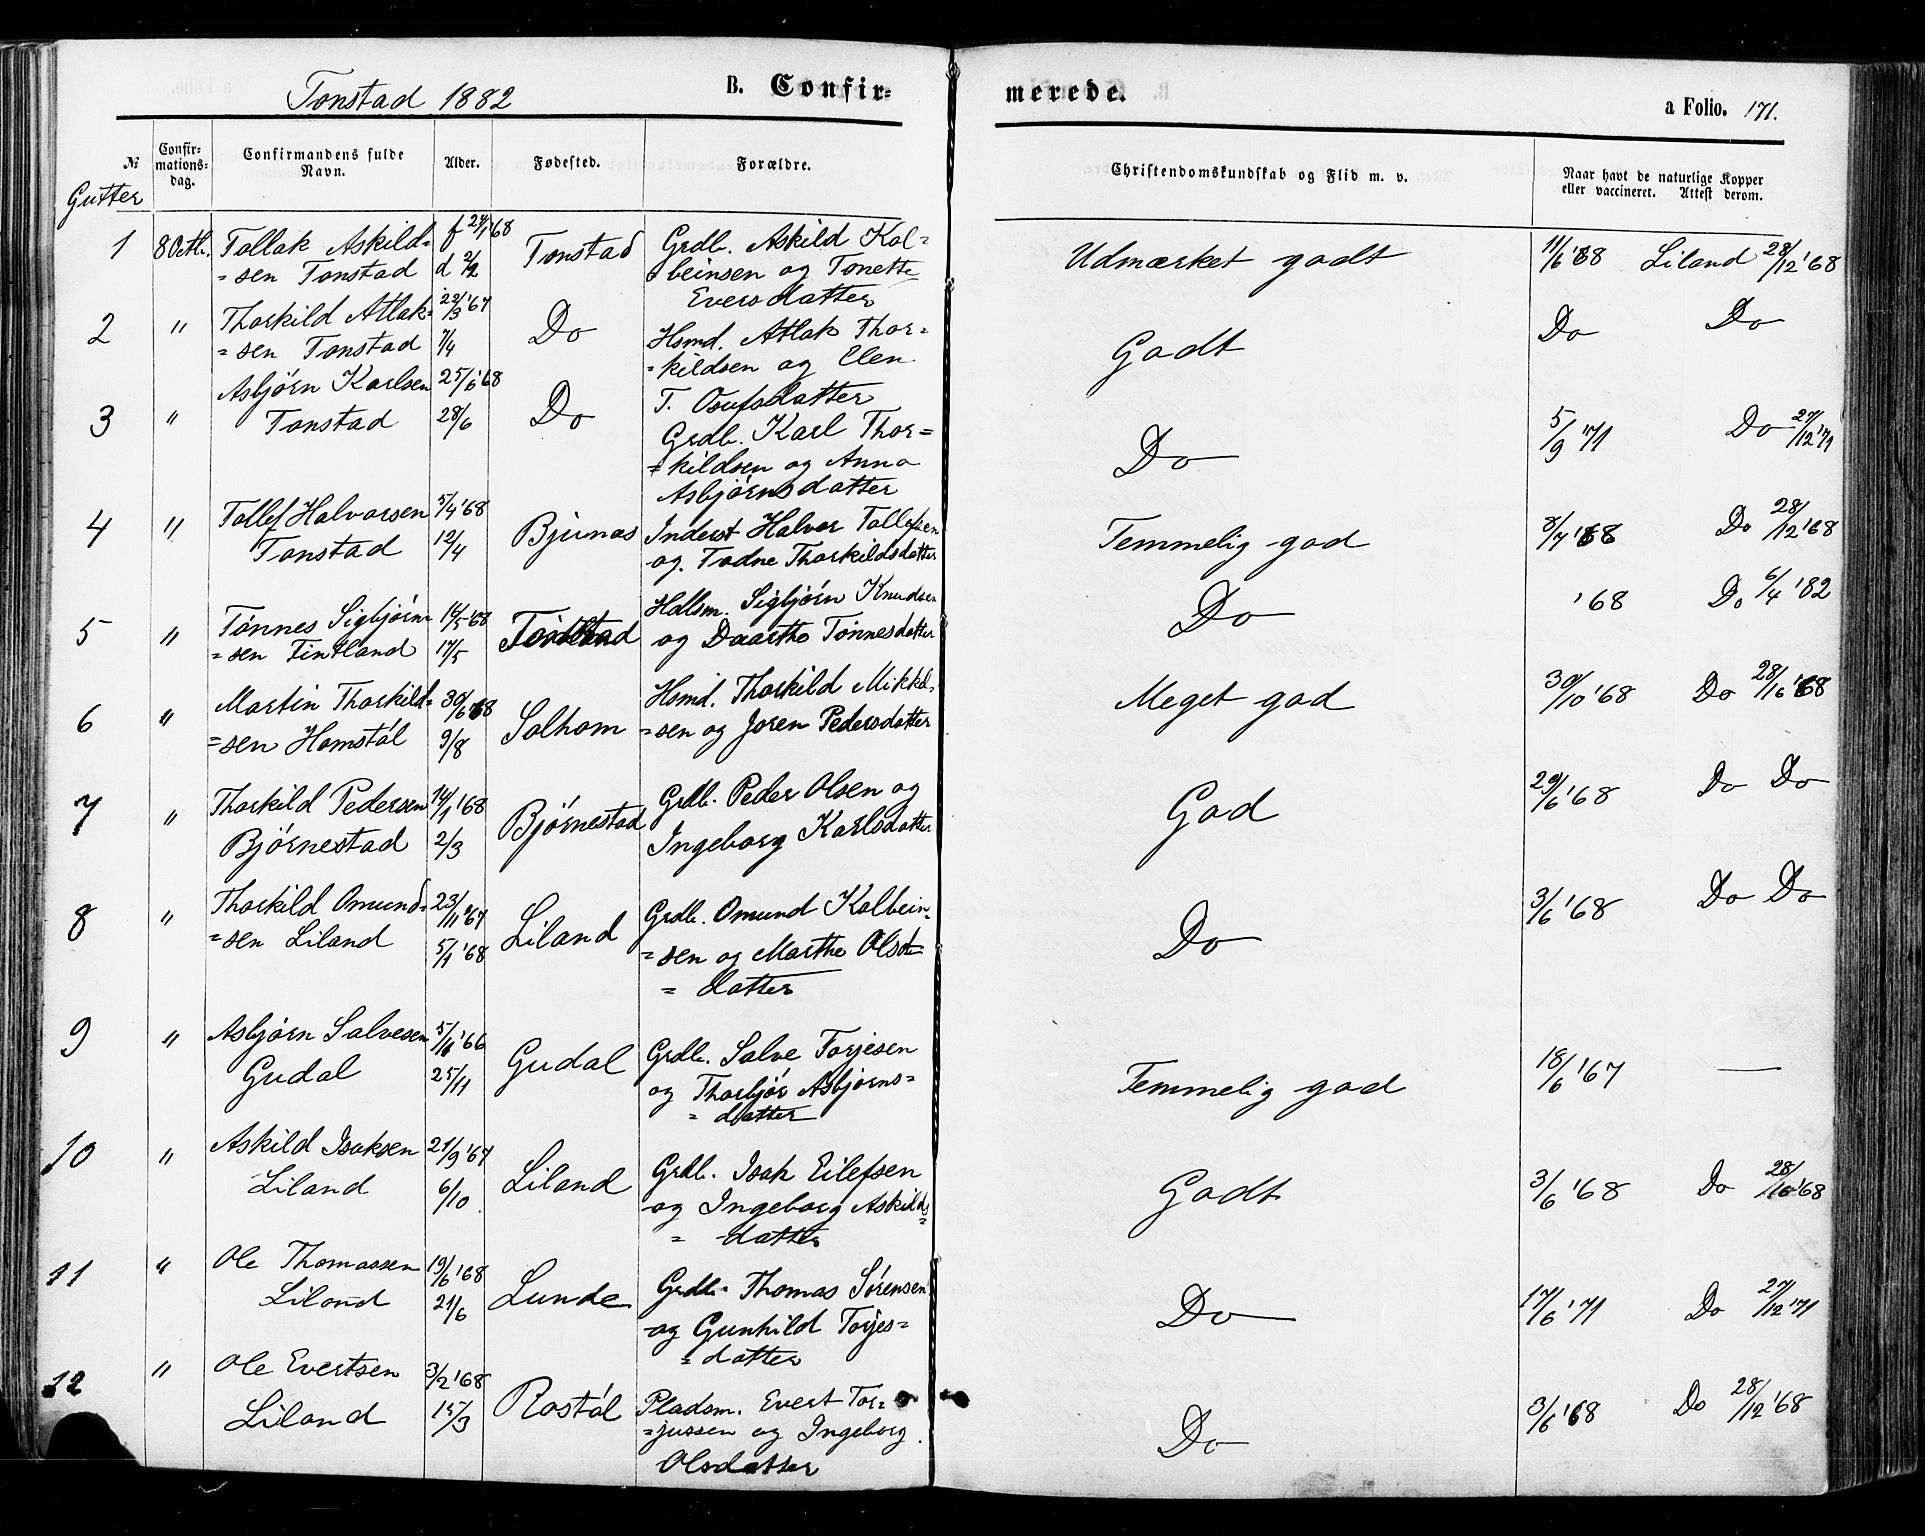 Tonstad 1882 B. Confirmerede. a Folio. 171.
№ Confirmationsdag. Confirmandens fulde Navn. Alder. Fødested. Forældre. Christendomskundskab og Flid m. v. Naar havt de naturlige Kopper eller vaccineret. Attest derom.
Gutter
1 8 Octb. Tollak Askild= f 24/1 '68 Tonstad Grdb. Askild Kol= Udmærket godt 11/6 '68 Liland 28/12 '68
=sen Tonstad d 2/2 =beinsen og Tonette
Eversdatter
2 " Thorkild Atlak= 22/3 '67 Do Hsmd. Atlak Thor= Godt Do Do
=sen Tonstad 7/4 =kildsen og Elen
T. Osufsdatter
3 " Asbjørn Karlsen 25/6 '68 Do Grdb. Karl Thor= Do 5/9 '71 Do 27/12 '71
Tonstad 28/6 =kildsen og Anna
Asbjørnsdatter
4 " Tollef Halvorsen 5/4 '68 Bjunes Inderst Halvor Tollefsen Temmelig god 8/7 '68 Do 28/12 '68
Tonstad 12/4 og Todne Thorkildsdatter
5 " Tønnes Sigbjørn= 14/5 '68 Hdlsm. Sigbjørn Knudsen Do '68 Do 6/4 '82
=sen Fintland 17/5 og Daarthe Tønnesdatter
6 " Martin Thorkild= 30/6 '68 Solhom Hsmd. Thorkild Mikkel= Meget god 30/10 '68 Do 28/10 '68
=sen Homstøl 9/8 =sen og Joren Pedersdatter
7 " Thorkild Pedersen 14/1 '68 Bjørnestad Grdb. Peder Olsen og God 29/6 '68 Do Do
Bjørnestad 2/3 Ingeborg Karlsdatter
8 " Thorkild Omund= 23/11 '67 Liland Grdb. Omund Kolbein= Do 3/6 '68 Do Do
=sen Liland 5/1 '68 =sen og Marthe Ols=
=datter
9 " Asbjørn Salvesen 5/11 '66 Gudal Grdb. Salve Torjesen Temmelig god 18/6 '67 —
Gudal 25/11 og Thorbjør Asbjørns=
=datter
10 " Askild Isaksen 21/9 '67 Liland Grdb. Isak Eilefsen Godt 3/6 '68 Do 28/10 '68
Liland 6/10 og Ingeborg Askilds=
=datter
11 " Ole Thomassen 19/6 '68 Lunde Grdb. Thomas Sørensen Do 17/6 '71 Do 27/12 '71
Liland 21/6 og Gunhild Torjes=
=datter
12 " Ole Evertsen 3/2 '68 Rostøl Pladsm. Evert Tor= Do 3/6 '68 Do 28/12 '68
Liland 15/3 =jussen og Ingeborg
Olsdatter